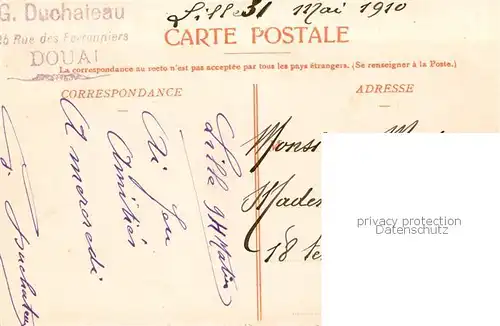 G. Duchateau
26 Rue des Ferronniers
DOUAI
Lille 31 Mai 1910
CARTE POSTALE
La correspondance au recto n'est pas acceptée par tous les pays étrangers. (Se renseigner à la Poste.)
CORRESPONDANCE
ADRESSE
Lille 9H Matin
Amitiés
A mercredi
G. Duchateau
Monsi
Madem
18
privacy protection
Datenschutz